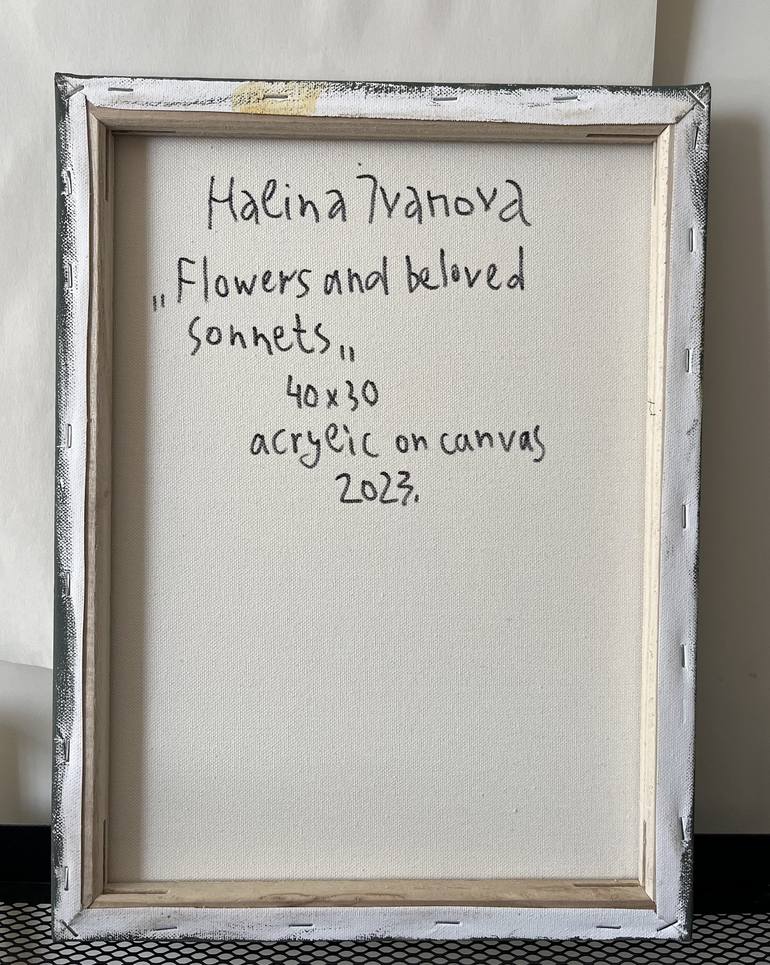 Halina Ivanova
„Flowers and beloved
sonnets„
40x30
acrylic on canvas
2023.